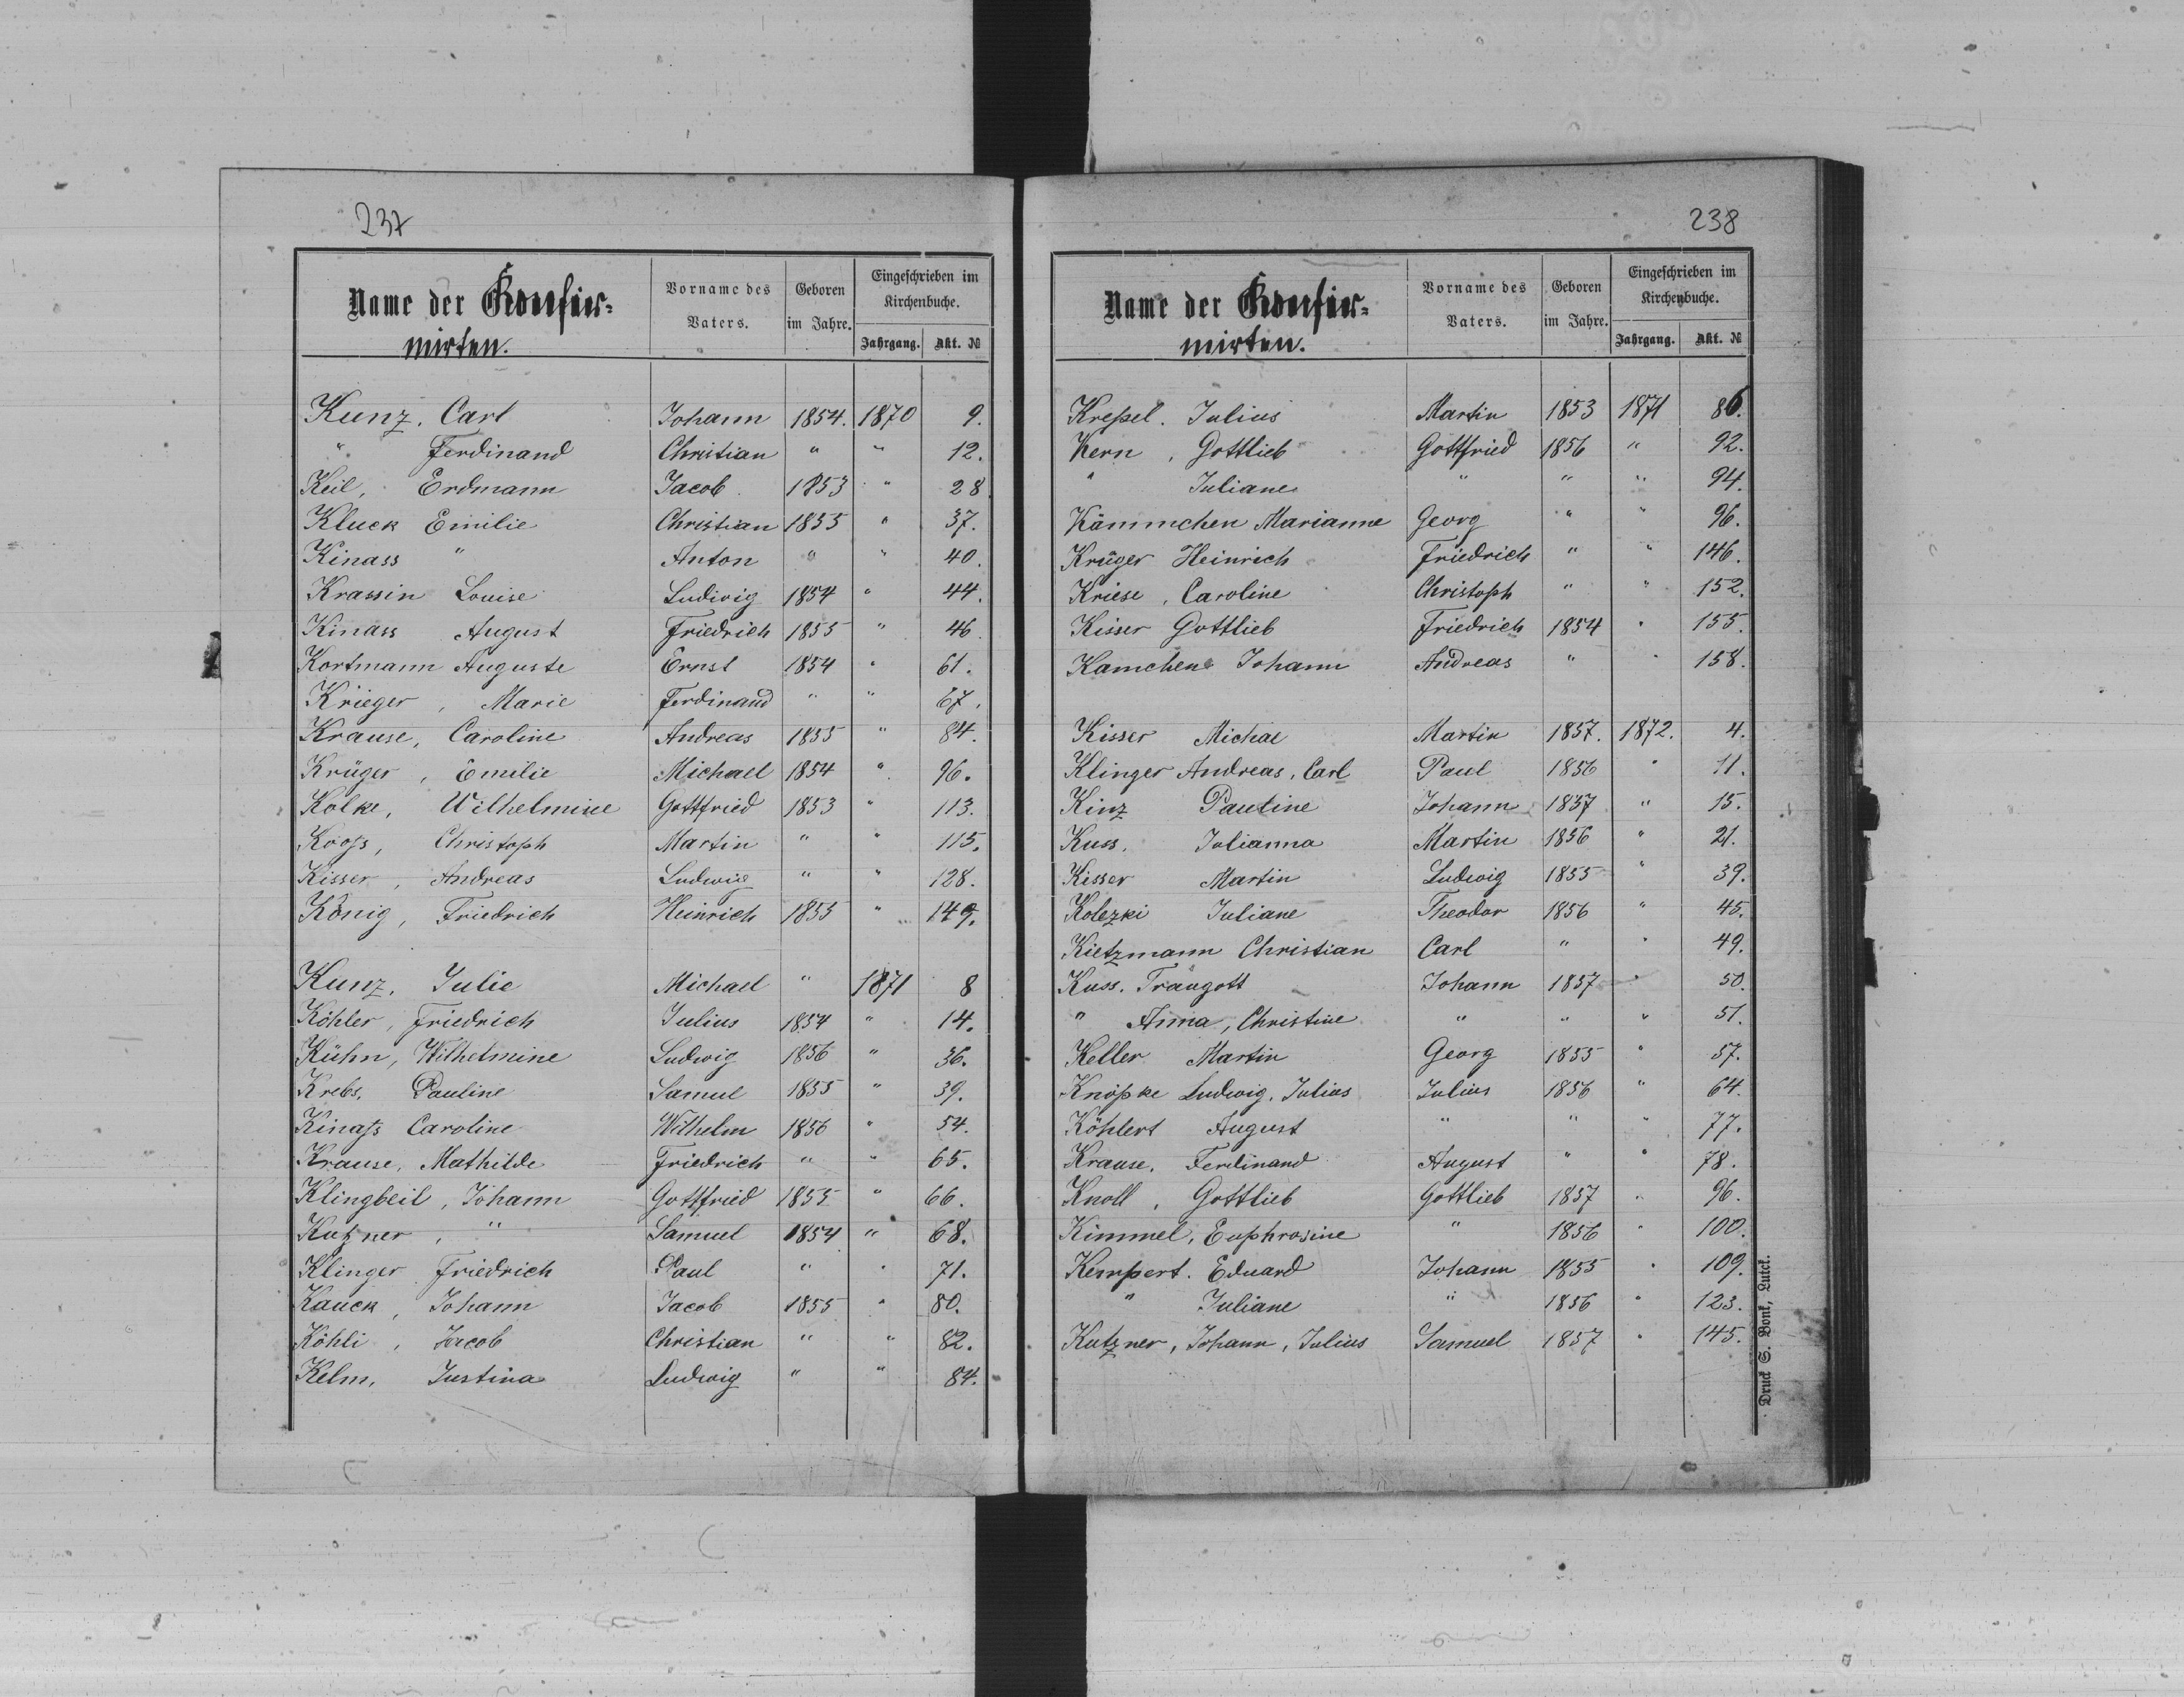 237
Name der Konfir-
mirten.
Vorname des
Vaters.
Geboren
im Jahre.
Eingeschrieben im
Kirchenbuche.
Jahrgang. Akt. №
Kunz, Carl Johann 1854. 1870 9.
" Ferdinand Christian " " 12.
Keil, Erdmann Jacob 1853 " 28
Kluck Emilie Christian 1855 " 37.
Kinass " Anton " " 40.
Krassin Louise Ludwig 1854 " 44.
Kinass August Friedrich 1855 " 46
Kortmann Auguste Ernst 1854 " 61.
Krieger, Marie Ferdinand " " 67.
Krause, Caroline Andreas 1855 " 84.
Krüger, Emilie Michael 1854 " 96.
Kolke, Wilhelmine Gottfried 1853 " 113.
Koofs, Christoph Martin " " 115.
Kisser, Andreas Ludwig " " 128.
König, Friedrich Heinrich 1855 " 149.
Kunz, Julie Michael " 1871 8
Köhler, Friedrich Julius 1854 " 14.
Kühn, Wilhelmine Ludwig 1856 " 36.
Krebs, Pauline Samuel 1855 " 39.
Kinafs Caroline Wilhelm 1856 " 54.
Krause, Mathilde Friedrich " " 65.
Klingbeil, Johann Gottfried 1855 " 66.
Kutzner, " Samuel 1854 " 68.
Klinger Friedrich Paul " " 71.
Kauck, Johann Jacob 1855 " 80.
Köhli, Jacob Christian " " 82.
Kelm, Justina Ludwig " " 84.
238
Name der Konfir-
mirten.
Vorname des
Vaters.
Geboren
im Jahre.
Eingeschrieben im
Kirchenbuche.
Jahrgang. Akt. №
Krepel. Julius Martin 1853 1871 86.
Kern, Gottlieb Gottfried 1856 " 92.
" Juliane " " " 94.
Kämmchen Marianne Georg " " 96.
Krüger Heinrich Friedrich " " 146.
Kriese, Caroline Christoph " " 152.
Kisser Gottlieb Friedrich 1854 " 155.
Kamchen Johann Andreas " " 158.
Kisser Michae Martin 1857. 1872. 4.
Klinger Andreas, Carl Paul 1856 " 11.
Kinz Pauline Johann 1857 " 15.
Kuss, Julianna Martin 1856 " 21.
Kisser Martin Ludwig 1855 " 39.
Kolezki Juliane Theodor 1856 " 45.
Kietzmann Christian Carl " " 49.
Kuss. Traugott Johann 1857 " 50.
" Anna, Christine " " " 51.
Keller Martin Georg 1855 " 57.
Knöpke Ludwig, Julius Julius 1856 " 64.
Köhlert August " " " 77.
Krause, Ferdinand August " " 78.
Knoll, Gottlieb Gottlieb 1857 " 96.
Kimmel, Euphrosine " 1856 " 100.
Kempert. Eduard Johann 1855 " 109.
" Juliane " 1856 " 123.
Kutzner, Johann, Julius Samuel 1857 " 145.
Druck S. Bonk, Lutck.